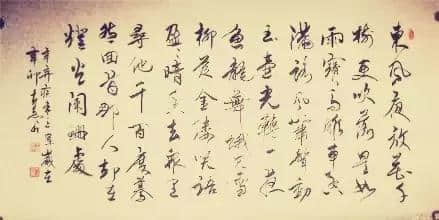 東风夜放花千
樹更吹落星如
雨寶馬雕車香
滿路鳳簫聲動
玉壺光轉一夜
魚龍舞蛾兒雪
柳黃金縷笑語
盈盈暗香去衆里
尋他千百度驀
然回首那人却在
燈火闌珊處
辛弃疾 歲在
辛卯